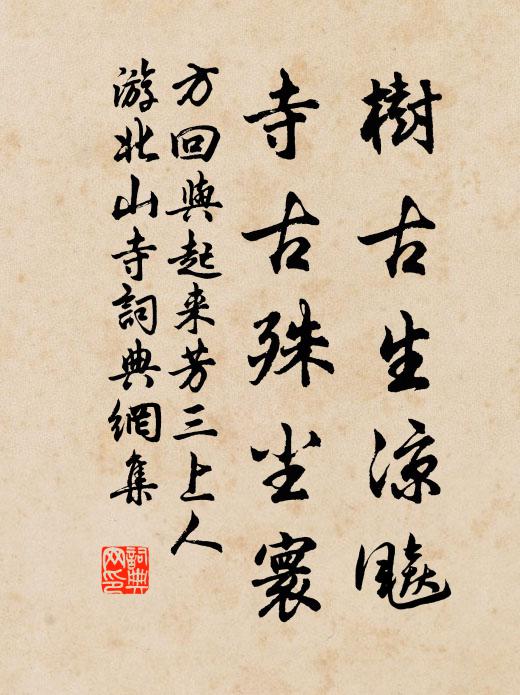 樹古生涼飈
寺古殊尘寰
方回與起来芳三上人
游北山寺詞典網集
詞典网印